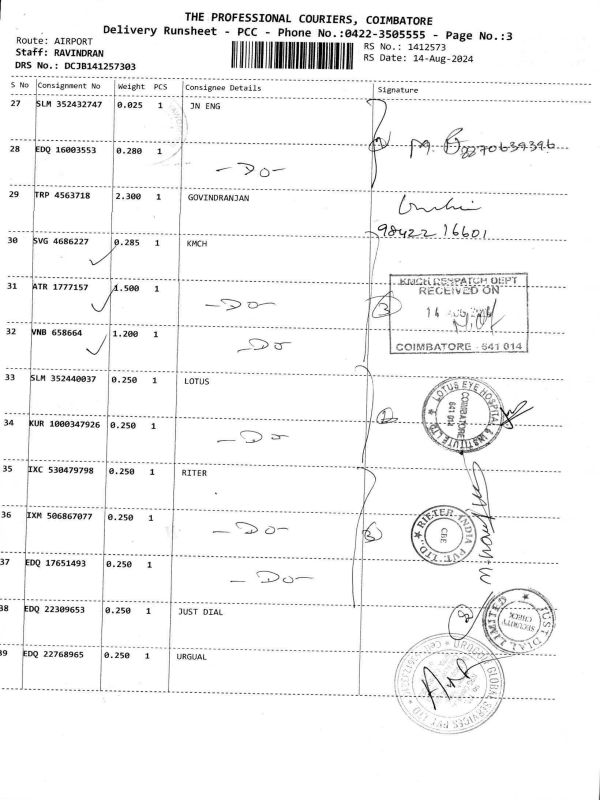 THE PROFESSIONAL COURIERS, COIMBATORE
Delivery Runsheet - PCC - Phone No.:0422-3505555 - Page No.:3
Route: AIRPORT
RS No.: 1412573
Staff: RAVINDRAN
RS Date: 14-Aug-2024
DRS No.: DCJB141257303
S No Consignment No Weight PCS Consignee Details Signature
27 SLM 352432747 0.025 1 JN ENG
28 EDQ 16003553 0.280 1
-DO-
29 TRP 4563718 2.300 1 GOVINDRANJAN
98422 16601
30 SVG 4686227 0.285 1 KMCH
31 ATR 1777157 1.500 1
-DO-
KMCH DESPATCH DEPT
RECEIVED ON
COIMBATORE - 641 014
32 VNB 658664 1.200 1
-DO-
33 SLM 352440037 0.250 1 LOTUS
LOTUS EYE HOSPITAL & INSTITUTE LTD.
COIMBATORE
641 014
34 KUR 1000347926 0.250 1
-DO-
35 IXC 530479798 0.250 1 RITER
36 IXM 506867077 0.250 1
-DO-
RIETER INDIA PVT. LTD.,
CBE
37 EDQ 17651493 0.250 1
-DO-
38 EDQ 22309653 0.250 1 JUST DIAL
JUST DIAL LIMITED
SECURITY
CHECK
39 EDQ 22768965 0.250 1 URGUAL
GLOBAL SERVICES PVT LTD